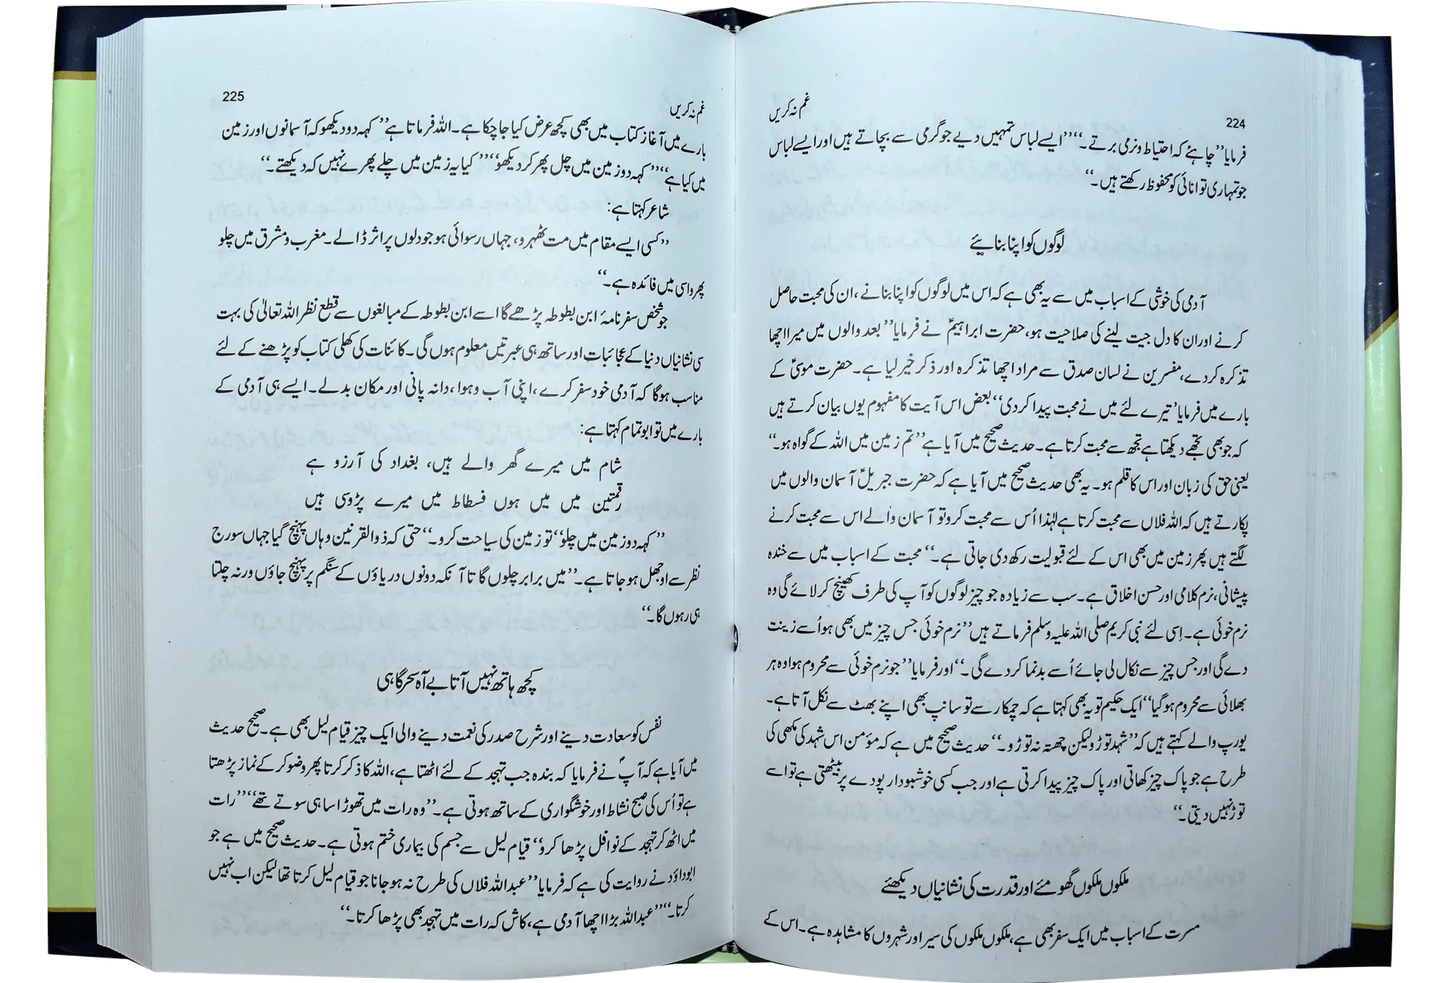 224
غم نہ کریں
فرمایا ’’چاہئے کہ احتیاط و نرمی برتے۔‘‘ ’’ایسے لباس تمہیں دیے جو گرمی سے بچاتے ہیں اور ایسے لباس
جو تمہاری توانائی کو محفوظ رکھتے ہیں۔‘‘
لوگوں کو اپنا بنائیے
آدمی کی خوشی کے اسباب میں سے یہ بھی ہے کہ اس میں لوگوں کو اپنا بنانے، ان کی محبت حاصل
کرنے اور ان کا دل جیت لینے کی صلاحیت ہو، حضرت ابراہیمؑ نے فرمایا ’’بعد والوں میں میرا اچھا
تذکرہ کر دے، مفسرین نے لسان صدق سے مراد اچھا تذکرہ اور ذکر خیر لیا ہے۔ حضرت موسیٰؑ کے
بارے میں فرمایا ’تیرے لئے میں نے محبت پیدا کر دی‘‘ بعض اس آیت کا مفہوم یوں بیان کرتے ہیں
کہ جو بھی تجھے دیکھتا ہے تجھ سے محبت کرتا ہے۔ حدیث صحیح میں آیا ہے ’’تم زمین میں اللہ کے گواہ ہو۔‘‘
یعنی حق کی زبان اور اس کا قلم ہو۔ یہ بھی حدیث صحیح میں آیا ہے کہ حضرت جبریلؑ آسمان والوں میں
پکارتے ہیں کہ اللہ فلاں سے محبت کرتا ہے لہٰذا اُس سے محبت کرو تو آسمان والے اس سے محبت کرنے
لگتے ہیں پھر زمین میں بھی اس کے لئے قبولیت رکھ دی جاتی ہے۔‘‘ محبت کے اسباب میں سے خندہ
پیشانی، نرم کلامی اور حسن اخلاق ہے۔ سب سے زیادہ جو چیز لوگوں کو آپ کی طرف کھینچ کر لائے گی وہ
نرم خوئی ہے۔ اِسی لئے نبی کریم صلی اللہ علیہ وسلم فرماتے ہیں ’’نرم خوئی جس چیز میں بھی ہو اُسے زینت
دے گی اور جس چیز سے نکال لی جائے اُسے بدنما کر دے گی۔‘‘ اور فرمایا ’’جو نرم خوئی سے محروم ہوا وہ ہر
بھلائی سے محروم ہو گیا‘‘ ایک حکیم تو یہ بھی کہتا ہے کہ چمکار سے تو سانپ بھی اپنے بھٹ سے نکل آتا ہے۔
یورپ والے کہتے ہیں کہ ’’شہد توڑ لیکن چھتہ نہ توڑو۔‘‘ حدیث صحیح میں ہے کہ مؤمن اس شہد کی مکھی کی
طرح ہے جو پاک چیز کھاتی اور پاک چیز پیدا کرتی ہے اور جب کسی خوشبودار پودے پر بیٹھتی ہے تو اسے
توڑ نہیں دیتی۔‘‘
ملکوں ملکوں گھومئے اور قدرت کی نشانیاں دیکھئے
مسرت کے اسباب میں ایک سفر بھی ہے، ملکوں ملکوں کی سیر اور شہروں کا مشاہدہ ہے۔ اس کے
225
غم نہ کریں
بارے میں آغاز کتاب میں بھی کچھ عرض کیا جا چکا ہے۔ اللہ فرماتا ہے ’’کہہ دو دیکھو کہ آسمانوں اور زمین
میں کیا ہے‘‘ ’’کہہ دو زمین میں چل پھر کر دیکھو‘‘ ’’کیا یہ زمین میں چلے پھرے نہیں کہ دیکھتے۔‘‘
شاعر کہتا ہے:
’’کسی ایسے مقام میں مت ٹھہرو، جہاں رسوائی ہو جو دلوں پر اثر ڈالے۔ مغرب و مشرق میں چلو
پھرو اسی میں فائدہ ہے۔‘‘
جو شخص سفر نامۂ ابن بطوطہ پڑھے گا اسے ابن بطوطہ کے مبالغوں سے قطع نظر اللہ تعالیٰ کی بہت
سی نشانیاں دنیا کے عجائبات اور ساتھ ہی عبرتیں معلوم ہوں گی۔ کائنات کی کھلی کتاب کو پڑھنے کے لئے
مناسب ہوگا کہ آدمی خود سفر کرے، اپنی آب و ہوا، دانہ پانی اور مکان بدلے۔ ایسے ہی آدمی کے
بارے میں تو ابو تمام کہتا ہے:
شام میں میرے گھر والے ہیں، بغداد کی آرزو ہے
رقمتین میں میں ہوں فسطاط میں میرے پڑوسی ہیں
’’کہہ دو زمین میں چلو‘‘ تو زمین کی سیاحت کرو۔‘‘ حتی کہ ذوالقرنین وہاں پہنچ گیا جہاں سورج
نظر سے اوجھل ہو جاتا ہے۔ ’’میں برابر چلوں گا تا آنکہ دونوں دریاؤں کے سنگم پر پہنچ جاؤں ورنہ چلتا
ہی رہوں گا۔‘‘
کچھ ہاتھ نہیں آتا بے آہ سحر گاہی
نفس کو سعادت دینے اور شرح صدر کی نعمت دینے والی ایک چیز قیام لیل بھی ہے۔ صحیح حدیث
میں آیا ہے کہ آپؐ نے فرمایا کہ بندہ جب تہجد کے لئے اٹھتا ہے، اللہ کا ذکر کرتا پھر وضو کر کے نماز پڑھتا
ہے تو اُس کی صبح نشاط اور خوشگواری کے ساتھ ہوتی ہے۔ ’’وہ رات میں تھوڑا سا ہی سوتے تھے‘‘ ’’رات
میں اٹھ کر تہجد کے نوافل پڑھا کرو‘‘ قیام لیل سے جسم کی بیماری ختم ہوتی ہے۔ حدیث صحیح میں ہے جو
ابوداؤد نے روایت کی ہے کہ فرمایا ’’عبداللہ فلاں کی طرح نہ ہو جانا جو قیام لیل کرتا تھا لیکن اب نہیں
کرتا۔‘‘ ’’عبداللہ بڑا اچھا آدمی ہے، کاش کہ رات میں تہجد بھی پڑھا کرتا۔‘‘